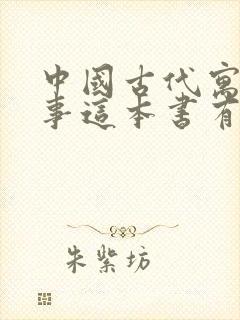 中國古代寓
事這本書有
朱紫坊